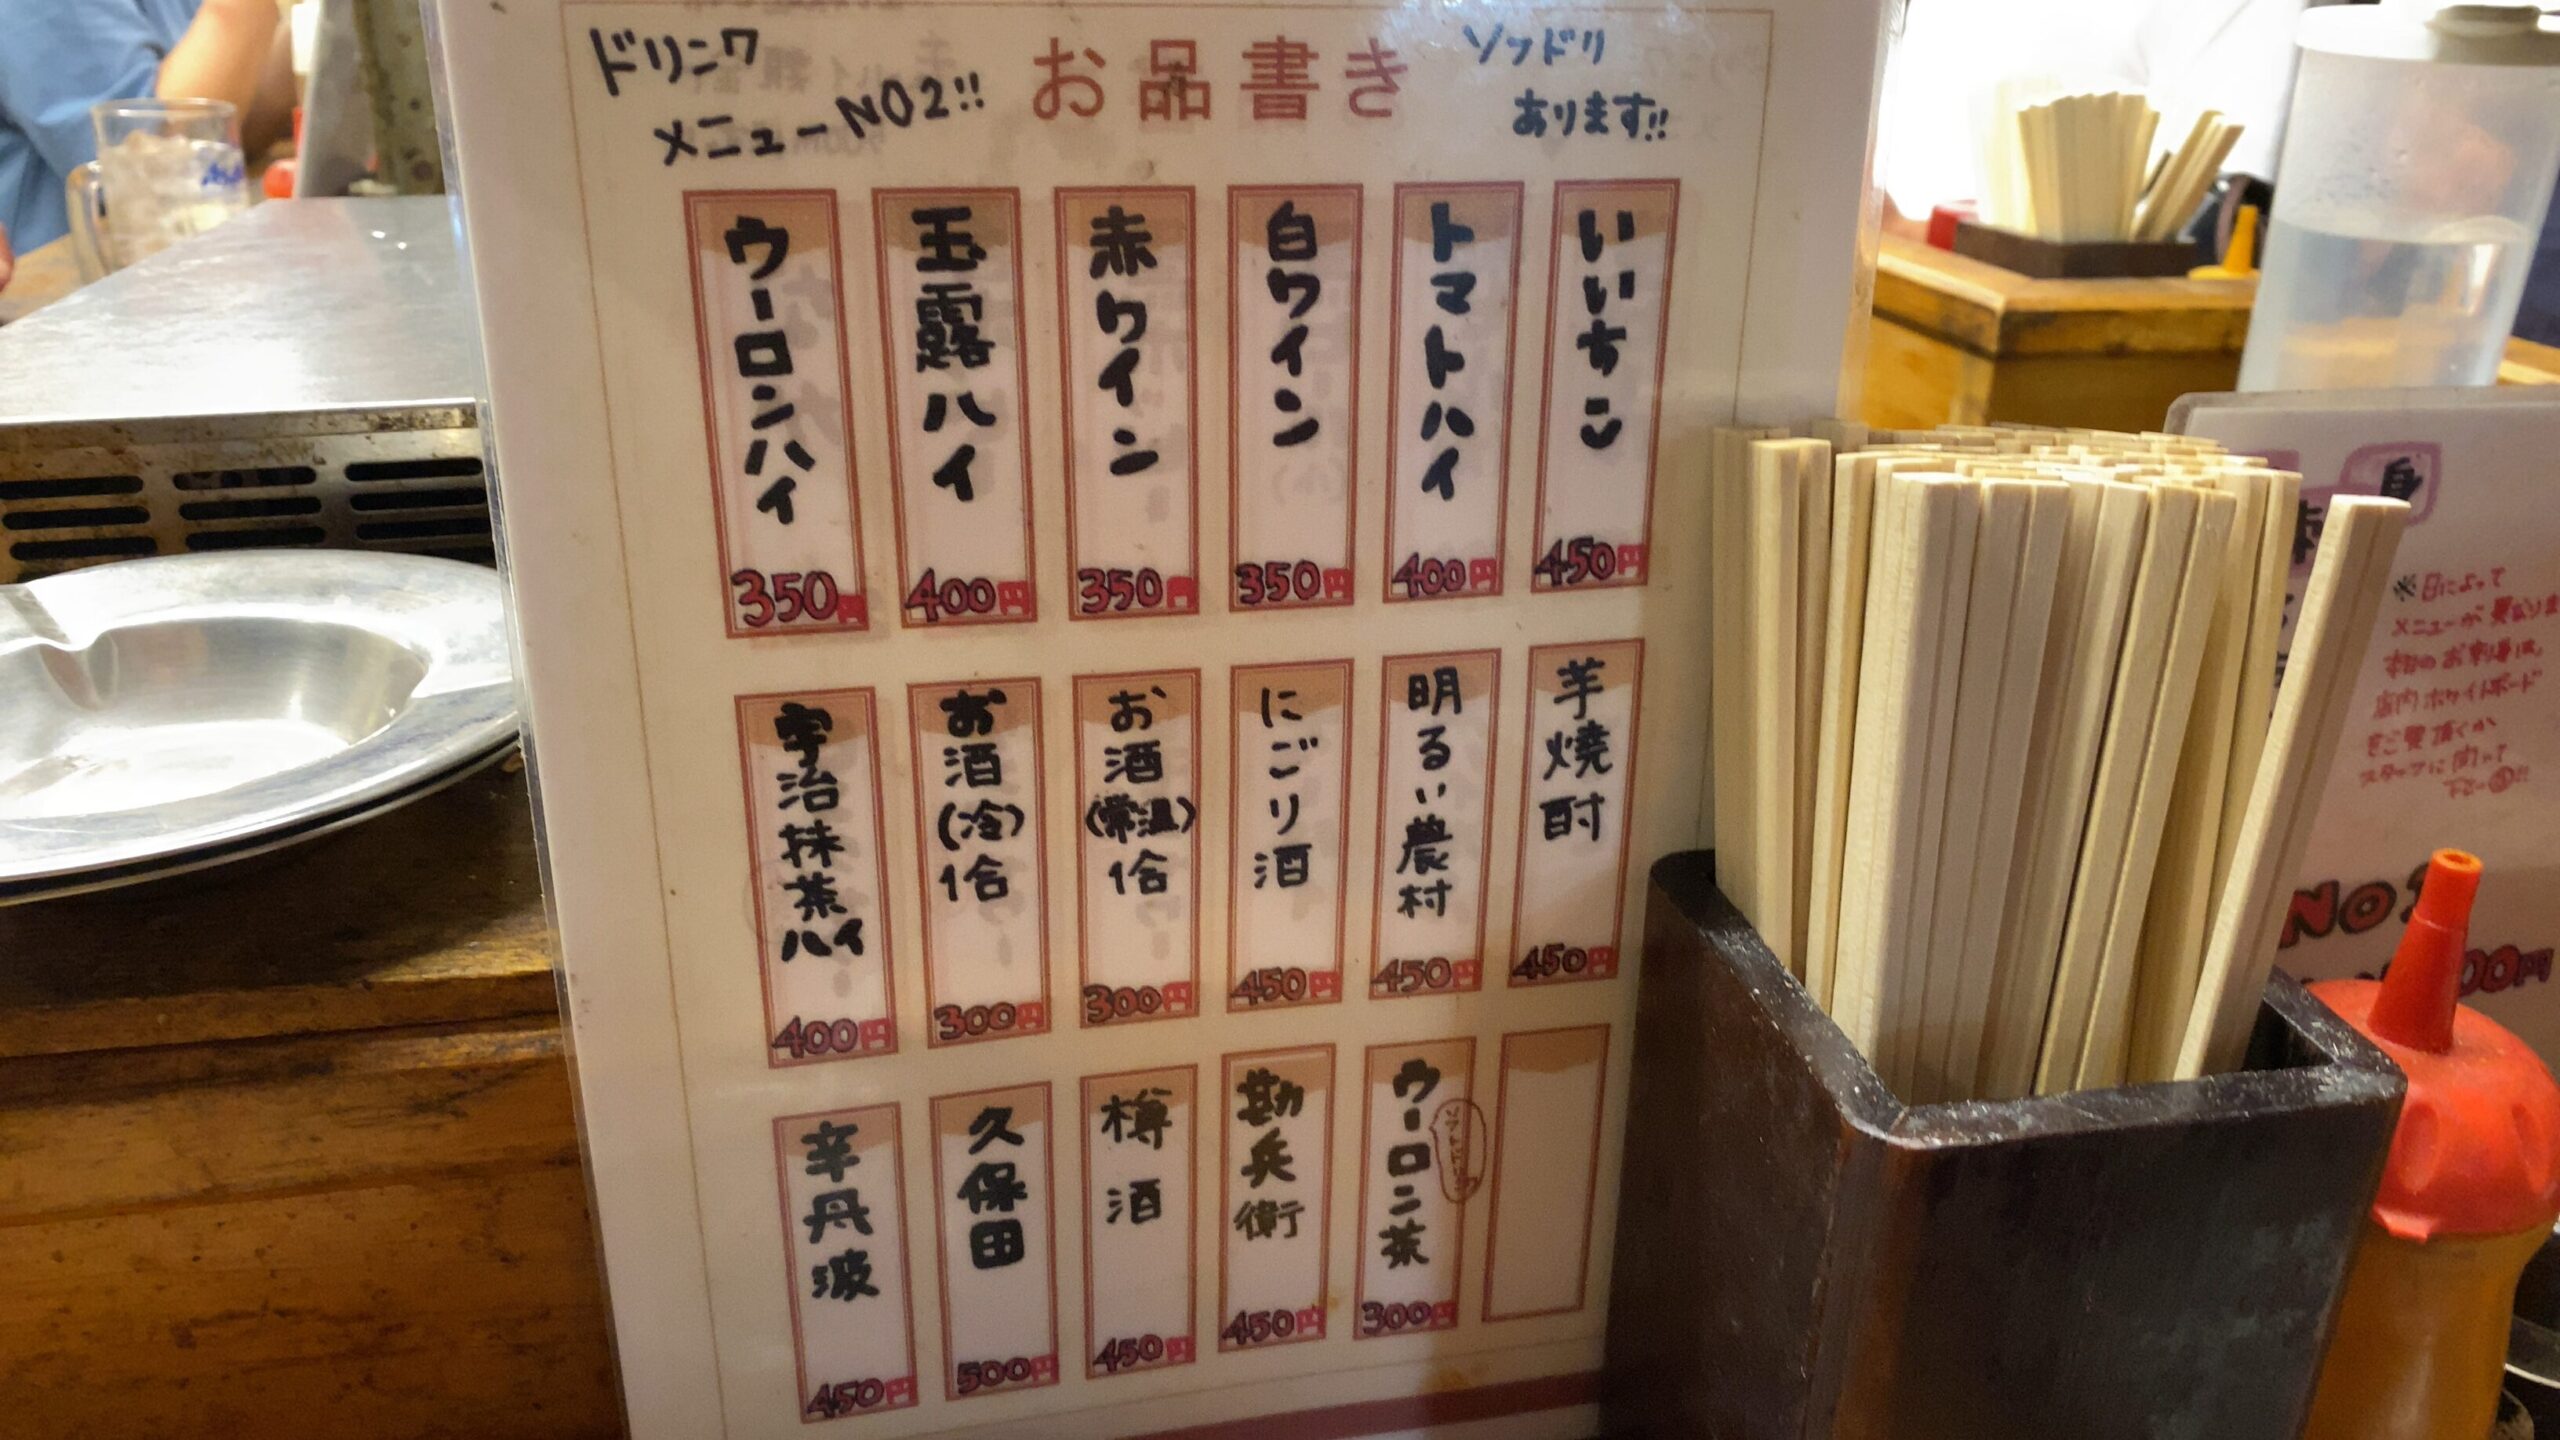 ドリンク
メニューNO2!!
お品書き
ソフドリ
あります!!
いいちこ
450円
トマトハイ
400円
白ワイン
350円
赤ワイン
350円
玉露ハイ
400円
ウーロンハイ
350円
芋焼酎
450円
明るい農村
450円
にごり酒
450円
お酒(常温)1合
300円
お酒(冷)1合
300円
宇治抹茶ハイ
400円
ウーロン茶
300円
勘兵衛
450円
樽酒
450円
久保田
500円
辛丹波
450円
※日によって
メニューが異なりま
店内ホワイトボード
をご覧頂くか
スタッフに聞いて
NO
00円